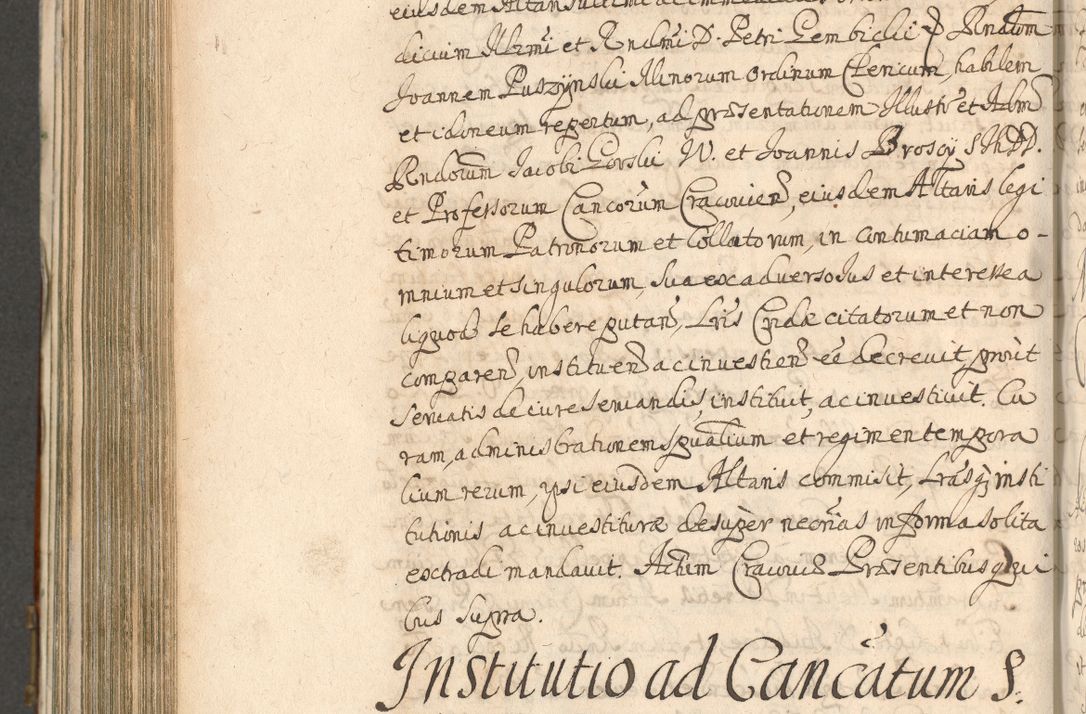 eiusdem Altaris ultimi ac immediati
dicium Illrmi et Rndmi D. Petri Gembicki Rndum
Joannem Puszynski Minorum Ordinum Clericum, habilem
et idoneum repertum, ad præsentationem Illustr et Adm
Rndorum Jacobi Gorski W. et Joannis Broscy S Th DD.
et Professorum Cancorum Cracovien, eiusdem Altaris legi
timorum Patronorum et Collatorum, in contumaciam o-
mnium et singulorum, sua ex adverso Jus et interesse a
liquod se habere putan, Lris Cndæ citatorum et non
comparen, instituen ac investien eē decrevit, prout
servatis de iure servandis, instituit, ac investivit. Cu
ram, administrationem spualium et regimen tempora
lium rerum, ipsi eiusdem Altaris commisit, Lras q3 insti
tutionis ac investituræ desuper necrias in forma solita
extradi mandavit. Actum Cracoviæ Præsentibus qui
bus supra.
Institutio ad Cancatum S.